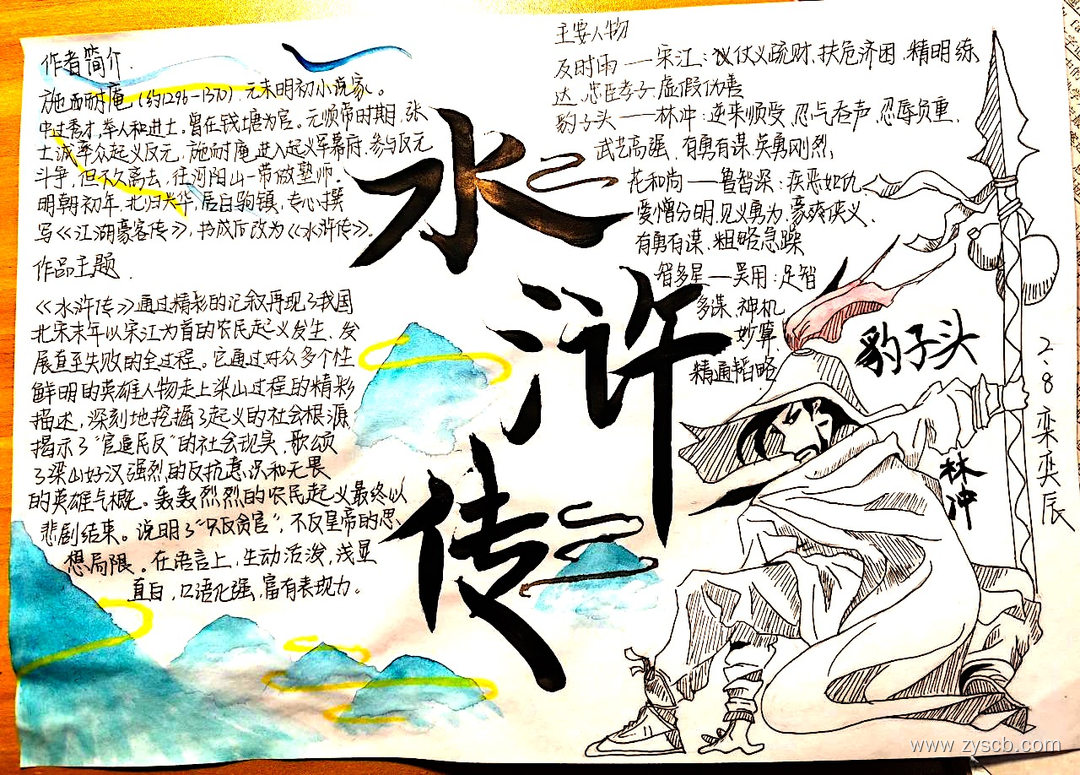 作者简介
施耐庵(约1296-1370).元末明初小说家。
中过秀才,举人和进士。曾在钱塘为官。元顺帝时期,张
士诚率众起义反元,施耐庵进入起义军幕府,参与反元
斗争,但不久离去,往河阳山一带做塾师。
明朝初年,北归兴华,居白驹镇,专心撰
写《江湖豪客传》,书成后改为《水浒传》。
作品主题
《水浒传》通过精彩的记叙再现了我国
北宋末年以宋江为首的农民起义发生、发
展直至失败的全过程。它通过对众多个性
鲜明的英雄人物走上梁山过程的精彩
描述,深刻地挖掘了起义的社会根源
揭示了“官逼民反”的社会现实,歌颂
了梁山好汉强烈的反抗意识和无畏
的英雄气概。轰轰烈烈的农民起义最终以
悲剧结束。说明了“只反贪官”,不反皇帝的思
想局限。在语言上,生动活泼,浅显
直白,口语化强,富有表现力。
水
浒
传
主要人物
及时雨——宋江:仗义疏财,扶危济困,精明练
达,忠臣孝子,虚假伪善
豹子头——林冲:逆来顺受,忍气吞声,忍辱负重,
武艺高强,有勇有谋,英勇刚烈,
花和尚——鲁智深:疾恶如仇
爱憎分明,见义勇为,豪爽侠义、
有勇有谋、粗略急躁
智多星—吴用:足智
多谋、神机
妙算
精通韬略
豹子头
林冲
2.8 栾奕辰
www.zyscb.com